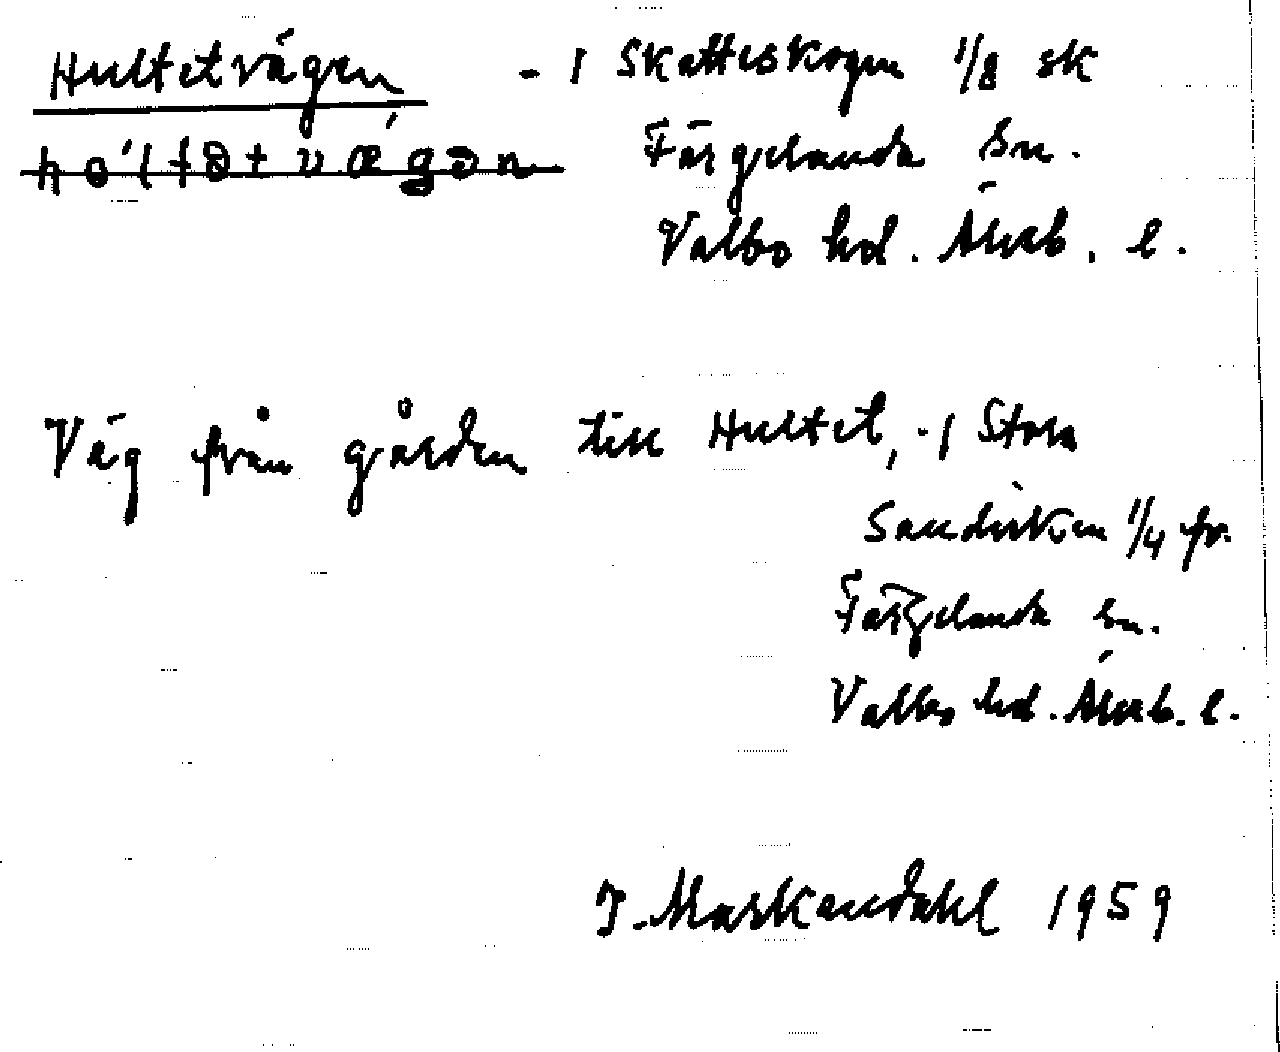 Hultetvägen - 1 Skatteskogen 1/8 sk
Färgelanda Sn.
Valbo hd. Älvsb. l.
Väg från gården till Hultet, - 1 Stora
1/4 fr.
Färgelanda sn.
Valbo hd. Älvsb. l.
J. Markendahl 1959